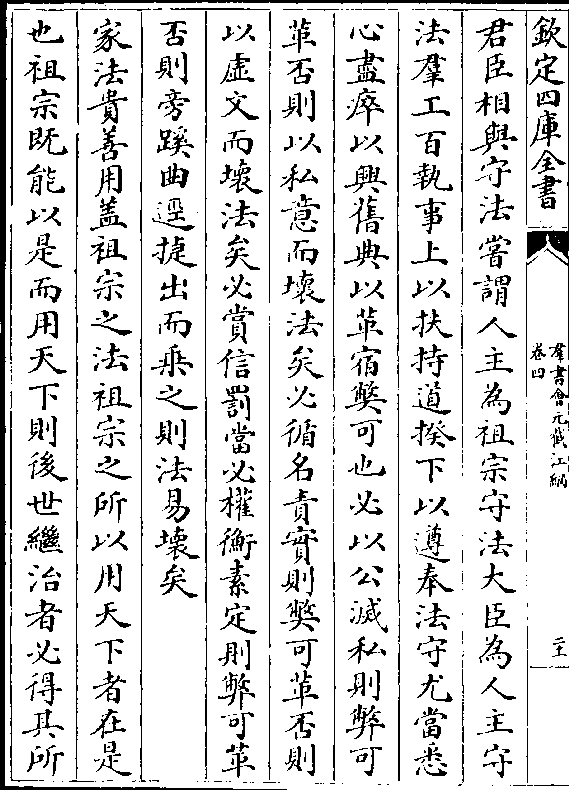 欽定四庫全書
羣書會元截江網
卷四
二十
君臣相與守法嘗謂人主為祖宗守法大臣為人主守
法羣工百執事上以扶持道揆下以遵奉法守尤當悉
心盡瘁以興舊典以革宿弊可也必以公滅私則弊可
革否則以私意而壞法矣必循名責實則弊可革否則
以虛文而壞法矣必賞信罰當必權衡素定則弊可革
否則旁蹊曲逕捷出而乗之則法易壞矣
家法貴善用蓋祖宗之法祖宗之所以用天下者在是
也祖宗既能以是而用天下則後世繼治者必得其所